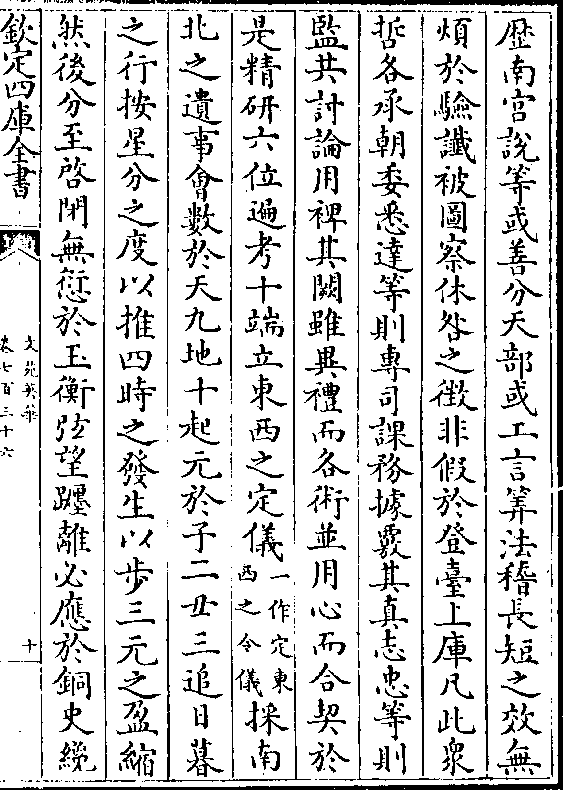 歴南宫說等或善分天部或工言筭法稽長短之效無
煩於驗讖被圖察休咎之徴非假於登臺上庫凡此衆
哲各承朝委悉達等則專司課務據覈其真志忠等則
監共討論用裨其闕雖異禮而各術並用心而合契於
是精研六位遍考十端立東西之定儀一作定東西之令儀採南
北之遺事會數於天九地十起元於子二丑三追日暮
之行按星分之度以推四時之發生以步三元之盈縮
然後分至啓閉無愆於玉衡弦望躔離必應於銅史纔
欽定四庫全書
文苑英華
卷七百三十六
十